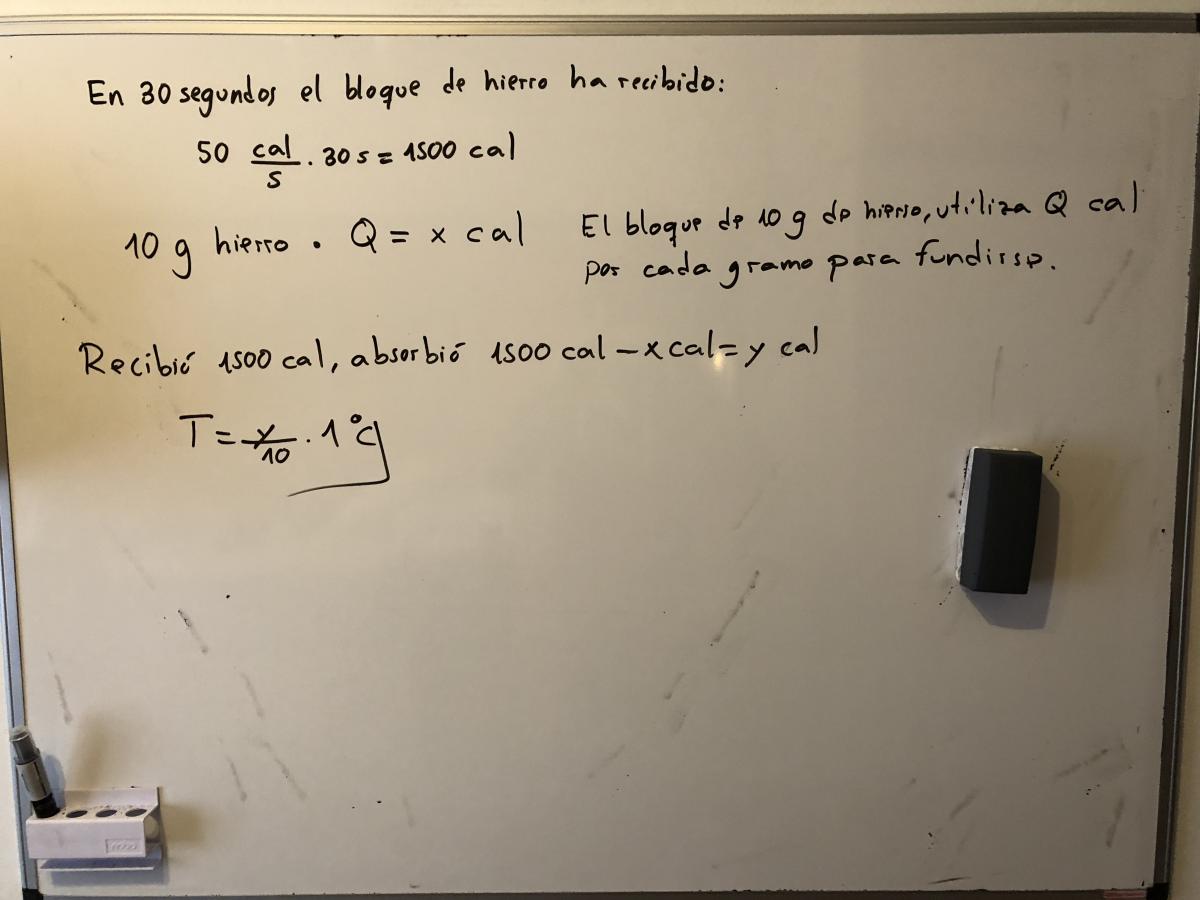 En 30 segundos el bloque de hierro ha recibido:
50 cal/s . 30 s = 1500 cal
10 g hierro . Q = x cal
El bloque de 10 g de hierro, utiliza Q cal
por cada gramo para fundirse.
Recibió 1500 cal, absorbió 1500 cal - x cal = y cal
T = y/10 . 1°C